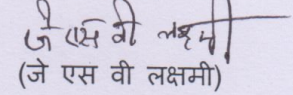 जे एस वी लक्ष्मी
(जे एस वी लक्षमी)